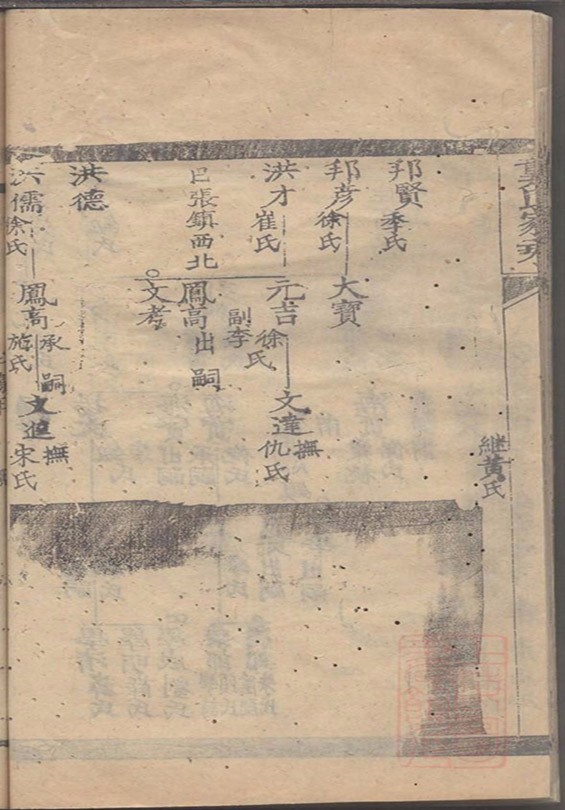 繼黃氏
邦賢 季氏
邦彥 徐氏 大寶
洪才 崔氏 元吉 徐氏 副李 文達 撫 仇氏
巳張鎮西北 鳳高 出嗣
文考
洪德
洪儒 徐氏 鳳高 承嗣 施氏 文進 撫 宋氏